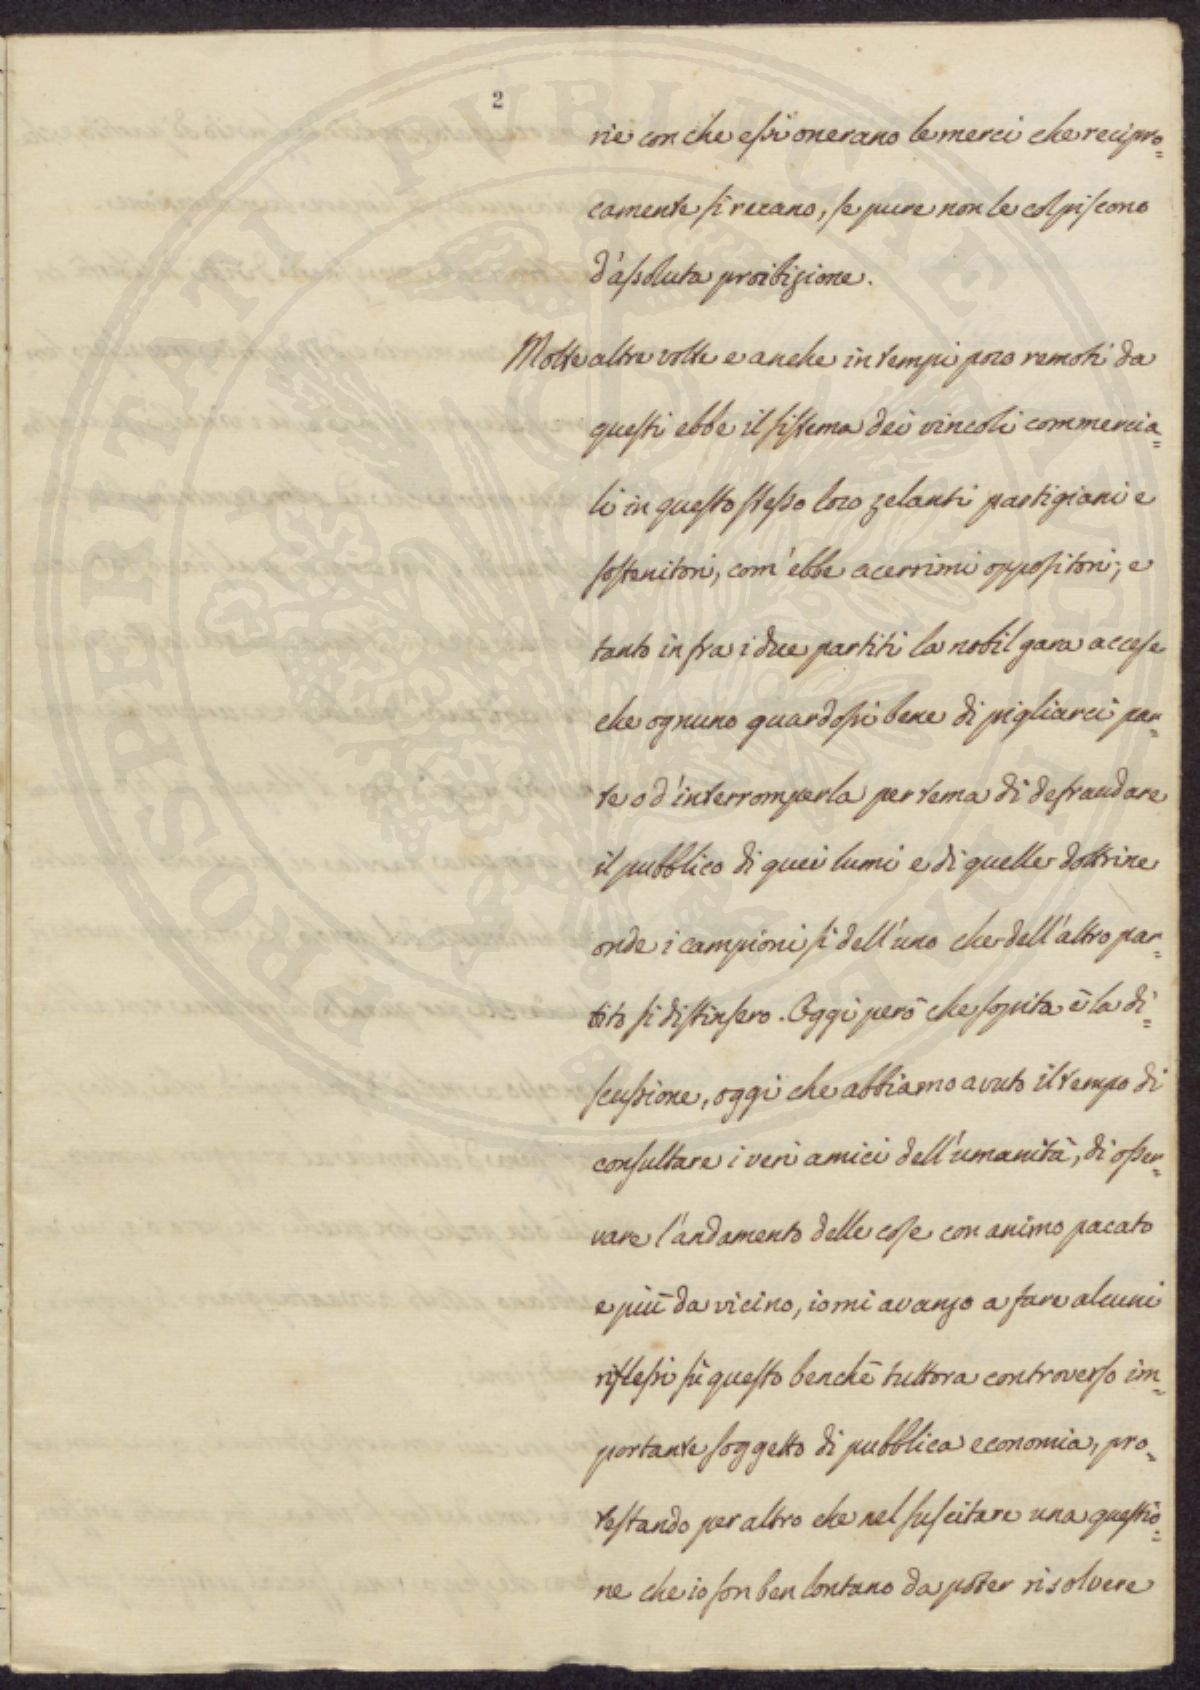 2
rie con che essi onerano le merci che recipro=
camente si recano, se pure non le colpiscono
d'assoluta proibizione.
Molte altre volte e anche in tempi poco remoti da
questi ebbe il sistema dei vincoli commercia=
li in questo stesso loco zelanti partigiani e
sostenitori, com'ebbe acerrimi oppositori; e
tanto in fra i due partiti la nobil gara accese
che ognuno guardossi bene di pigliarci par=
te o d'interromperla per tema di defraudare
il pubblico di quei lumi e di quelle dottrine
onde i campioni sì dell'uno che dell'altro par=
tito si distinsero. Oggi però che sopita è la di=
scussione, oggi che abbiamo avuto il tempo di
consultare i veri amici dell'umanità, di osser=
vare l'andamento delle cose con animo pacato
e più da vicino, io mi avanzo a fare alcuni
riflessi sù questo benchè tuttora controverso im=
portante soggetto di pubblica economia, pro=
testando per altro che nel suscitare una questio=
ne che io son ben lontano da poter risolvere
PROSPERITATI PUBLICAE AUGENDAE